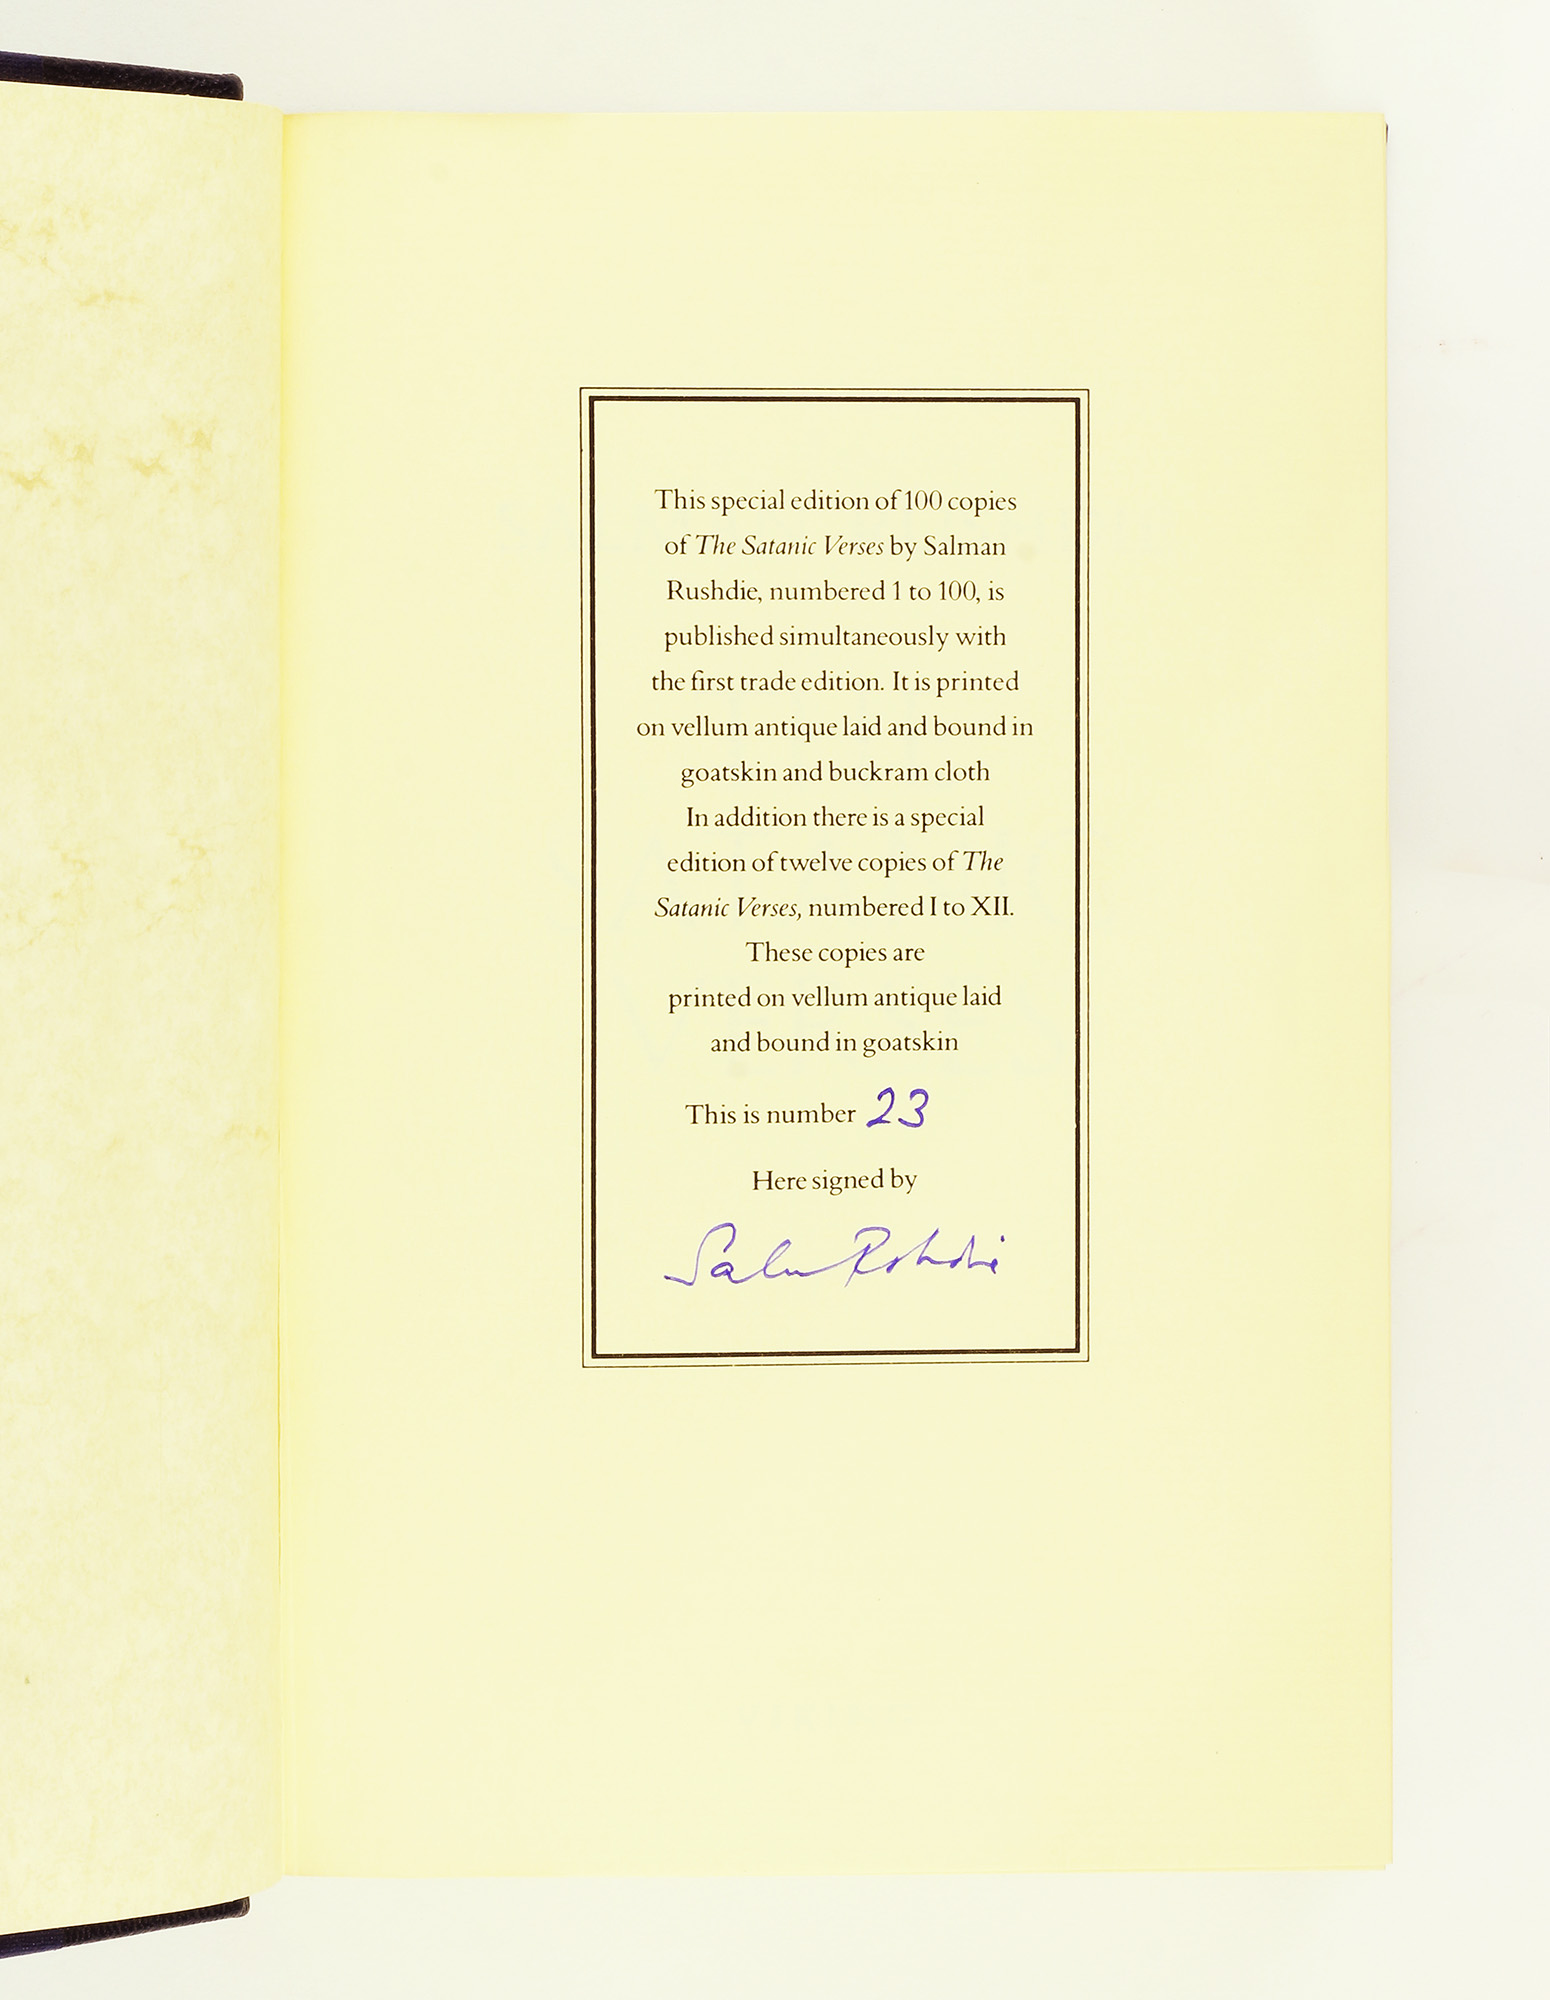 This special edition of 100 copies
of The Satanic Verses by Salman
Rushdie, numbered 1 to 100, is
published simultaneously with
the first trade edition. It is printed
on vellum antique laid and bound in
goatskin and buckram cloth
In addition there is a special
edition of twelve copies of The
Satanic Verses, numbered I to XII.
These copies are
printed on vellum antique laid
and bound in goatskin
This is number 23
Here signed by
Salman Rushdie